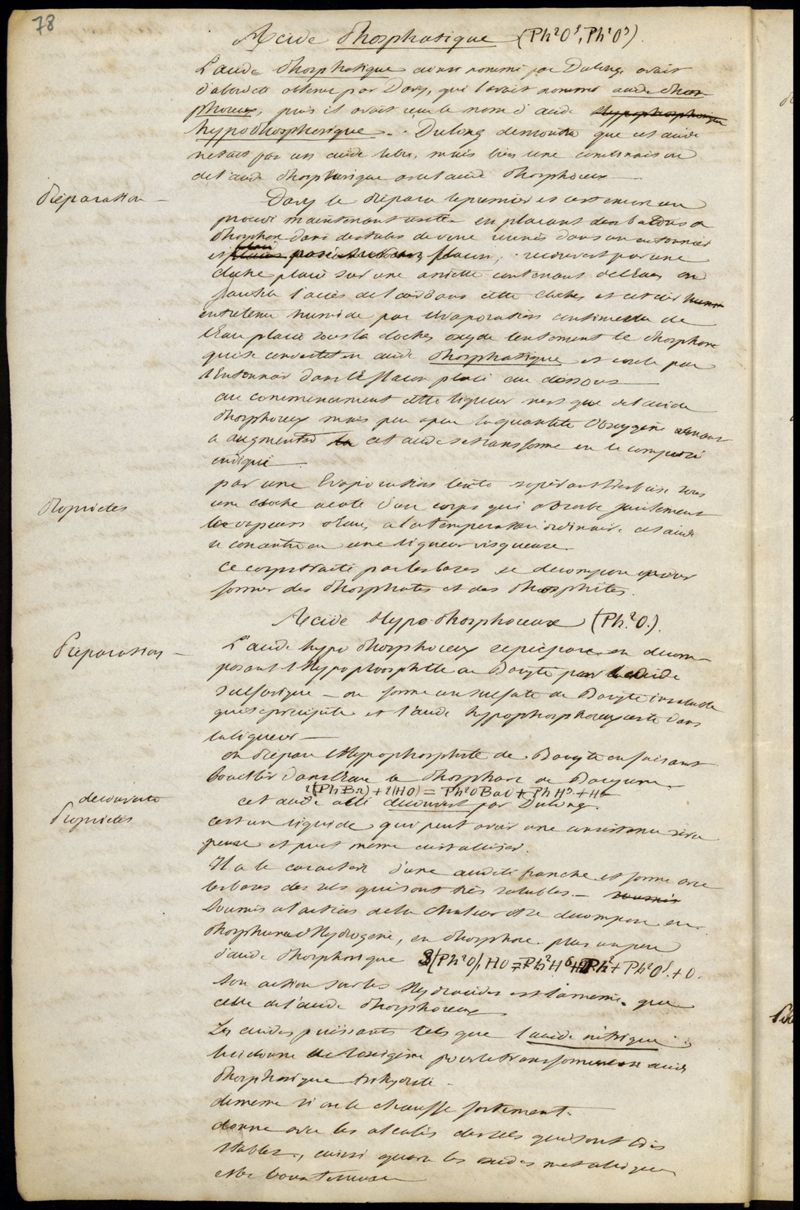 78
Acide Phosphatique (Ph²O⁵, Ph²O³)
L'acide Phosphatique ainsi nommé par Dulong, avait
d'abord été obtenu par Davy, qui l'avait nommé acide phos
phoreux, puis il avait reçu le nom d'acide hypophosphorique
hypophosphorique. Dulong démontra que cet acide
n'était pas un acide libre, mais bien une combinaison
de l'acide Phosphorique avec l'acide Phosphoreux
Préparation — Davy le prépara le premier et c'est encore son
procédé maintenant usité en plaçant des bâtons de
Phosphore dans des tubes de verre réunis dans un entonnoir
et placé flacon, recouvert par une
cloche placée sur une assiette contenant de l'eau, on
l'accès de l'air dans cette cloche et cet air
entretenu humide par l'évaporation continuelle de
l'eau placée sous la cloche, oxyde lentement le Phosphore
qui se convertit en acide Phosphatique et coule par
l'entonnoir dans le flacon placé au dessous —
au commencement cette liqueur n'est que de l'acide
Phosphoreux mais peu à peu la quantité d'oxygène venant
à augmenter la cet acide se transforme en le composé
indiqué —
Propriétés par une Evaporation lente sous
une cloche à côté d'un corps qui absorbe facilement
les vapeurs d'eau, à la température ordinaire, cet acide
se concentre en une liqueur visqueuse.
Ce corps traité par les bases se décompose pour
former des Phosphates et des Phosphites.
Acide Hypo Phosphoreux (Ph²O.)
Préparation — L'acide hypo Phosphoreux se prépare en décom-
posant l'Hypophosphite de Baryte par l'acide
sulfurique — on forme un sulfate de Baryte insoluble
qui se précipite et l'acide hypophosphoreux reste dans
la liqueur —
on prépare l'Hypophosphite de Baryte en faisant
bouillir dans l'eau le Phosphure de Baryum.
2(PhBa) + 2(HO) = Ph²OBaO + PhH³ + H
découverte cet acide a été découvert par Dulong.
Propriétés c'est un liquide qui peut avoir une consistance siru
peuse et peut même cristalliser.
Il a le caractère d'une acidité franche et forme avec
les bases des sels qui sont très solubles. — soumis
Soumis à l'action de la chaleur il se décompose en
Phosphure d'Hydrogène, en Phosphore plus un peu
d'acide Phosphorique
Son action sur les Hydracides est la même que
celle de l'acide Phosphoreux
Les acides puissants tels que l'acide nitrique
lui donne de l'oxigène pour le transformer en acide
Phosphorique trihydraté.
de même si on le chauffe fortement.
donne avec les alcalis des sels qui sont très
stables, ainsi qu'avec les oxides métalliques